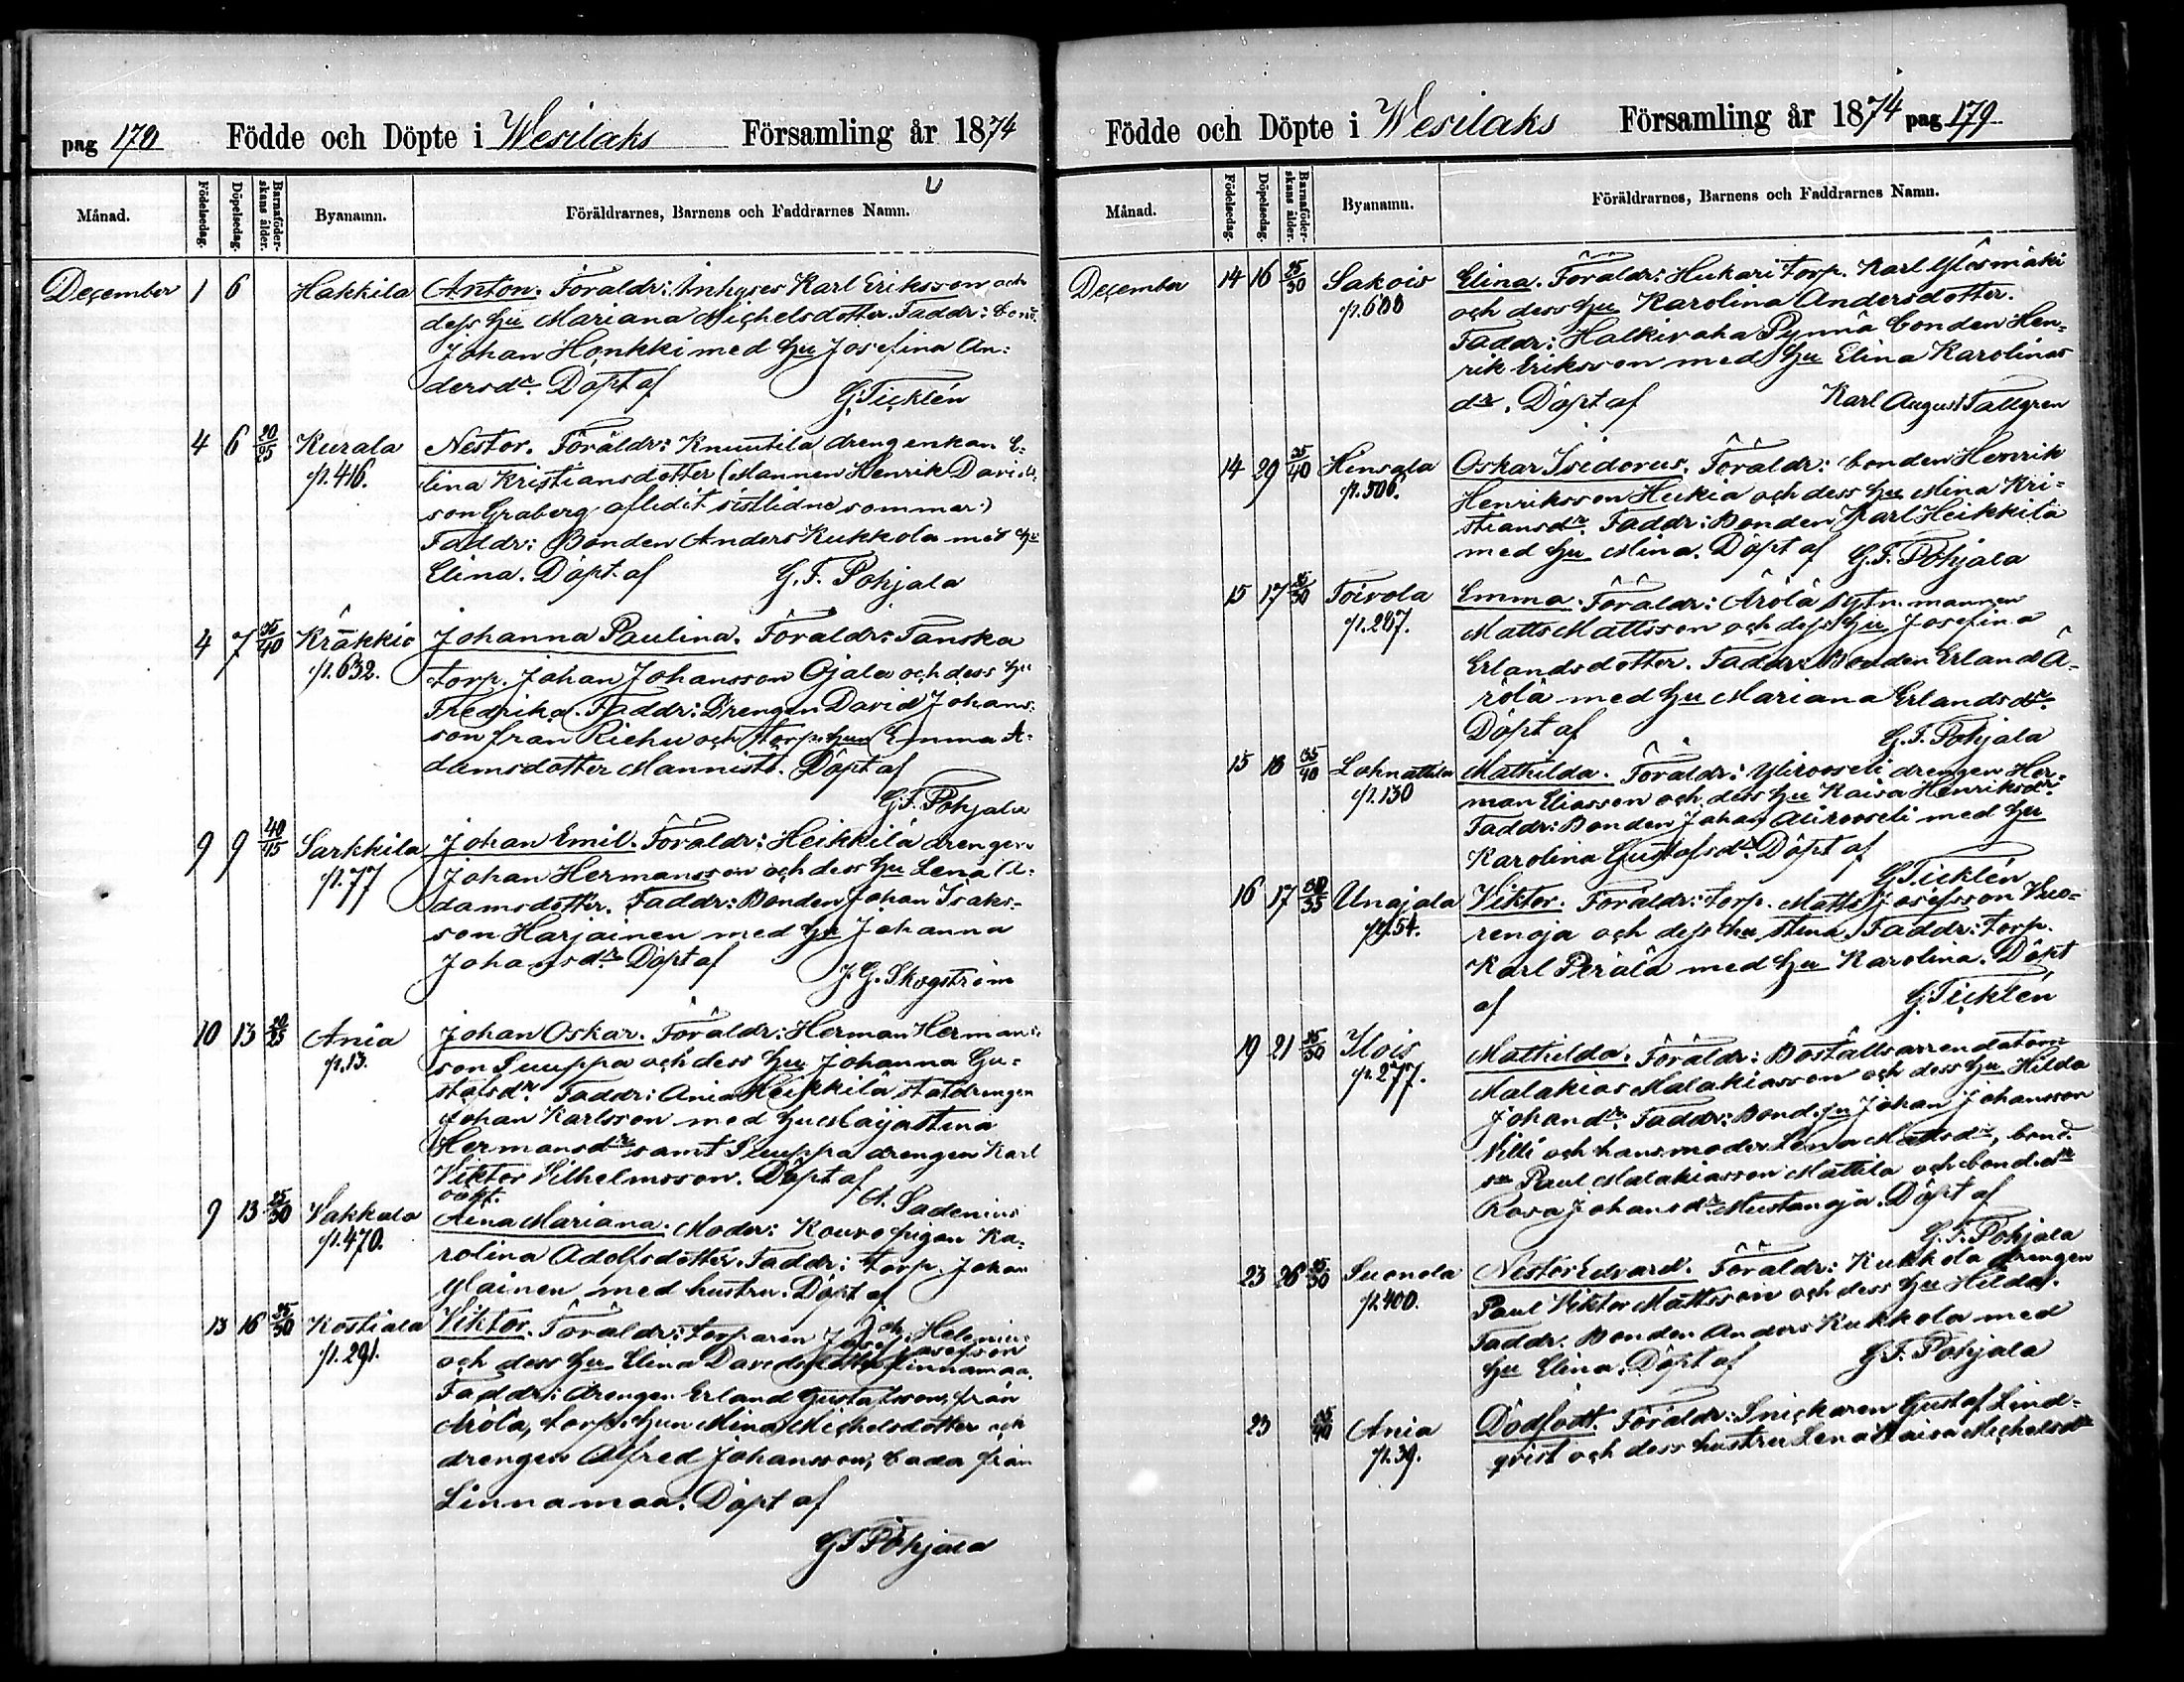 pag 178 Födde och Döpte i Wesilaks Församling år 1874
Månad. Födelsedag. Döpelsedag. Barnaföderskans ålder. Byanamn. Föräldrarnes, Barnens och Faddrarnes Namn.
December 1 6 Hakkila Anton. Föräldr: Inhyses Karl Eriksson och
dess hu Mariana Michelsdotter. Faddr: bond.
Johan Honkki med hu Josefina An-
dersdr. Döpt af G. Ticklén
4 6 20/25 Kurala Nestor. Föräldr: Knuutila drengenkan E-
p. 416. lina Kristiansdotter (Mannen Henrik Davids-
son Graberg aflidit sistlidne sommar.)
Faddr: Bonden Anders Kukkola med hu
Elina. Döpt af G. F. Pohjala
4 7 35/40 Kräkkiö Johanna Paulina. Föräldr: Tanska
p. 632. torp. Johan Johansson Ojala och dess hu
Fredrika. Faddr: Drengen David Johans-
son från Riehu och torp. hun Emma A-
damsdotter Mannisto. Döpt af
G. F. Pohjala
9 9 40/45 Sarkkila Johan Emil. Föräldr: Heikkilä drengen
p. 77 Johan Hermansson och dess hu Lena A-
damsdotter. Faddr: Bonden Johan Isaks-
son Harjainen med hu Johanna
Johansdr. Döpt af J. G. Skogström
10 13 20/25 Ania Johan Oskar. Föräldr: Herman Hermans-
p. 13. son Suuppa och dess hu Johanna Gu-
stafsdr. Faddr: Ania Heikkilä statdrengen
Johan Karlsson med hu Majastina
Hermansdr samt Suuppa drengen Karl
Viktor Vilhelmsson. Döpt af
oäkt. A. Sadenius
9 13 25/30 Vakkala Aina Mariana. Moder: Kouvo pigan Ka-
p. 470. rolina Adolfsdotter. Faddr: torp. Johan
Ylainen med hustru. Döpt af
13 16 25/30 Kostiala Viktor. Föräldr: torparen Josef Josefsson
p. 291. och dess hu Elina Davidsdotter Linnamaa.
Faddr: drengen Erland Gustafsson från
Arölä, torp. hun Mina Michelsdotter och
drengen Alfred Johansson, båda från
Linnamaa. Döpt af
G F Pohjala
Födde och Döpte i Wesilaks Församling år 1874 pag 179
Månad. Födelsedag. Döpelsedag. Barnaföderskans ålder. Byanamn. Föräldrarnes, Barnens och Faddrarnes Namn.
December 14 16 25/30 Sakois Elina. Föräldr: Hukari torp. Karl Ylösmäki
p. 600 och dess hu Karolina Andersdotter.
Faddr: Halkivaha Pynnä bonden Hen-
rik Eriksson med hu Elina Karolina
dr. Döpt af Karl August Tallgren
14 20 35/40 Hinsala Oskar Isidorus. Föräldr: bonden Henrik
p. 506. Henriksson Hukia och dess hu Mina Kri-
stiansdr. Faddr: Bonden Karl Heikkilä
med hu Mina. Döpt af G. F. Pohjala
15 17 25/30 Toivola Emma. Föräldr: Ärölä sytn. mannen
p. 267. Matts Mattsson och dess hu Josefina
Erlandsdotter. Faddr: Bonden Erland Ä-
rölä med hu Mariana Erlandsdr.
Döpt af G. F. Pohjala
15 18 35/40 Lohnattila Mathilda. Föräldr: Ylirooseli drengen Her-
p. 130 man Eliasson och dess hu Kaisa Henriksdr.
Faddr: Bonden Johan Alirooseli med hu
Karolina Gustafsdr. Döpt af
G. Ticklén
16 17 30/35 Unajala Viktor. Föräldr: torp. Matts Josefsson Vuo-
p. 54. renoja och dess hu Stina. Faddr: torp.
Karl Perälä med hu Karolina. Döpt
af G. Ticklén
19 21 25/30 Ilois Mathilda. Föräldr: Boställsarrendatorn
p. 277. Malakias Malakiasson och dess hu Hilda
Johansdr. Faddr: Bond. Johan Johansson
Villi och hans moder Lena Mattsdr, bond.
sn Paul Malakiasson Mattila och bond. dr
Rosa Johansdr Mustanoja. Döpt af
G. F. Pohjala
23 26 25/30 Suonola Nestor Edvard. Föräldr: Kukkola drengen
p. 400. Paul Viktor Mattsson och dess hu Hilda.
Faddr. Bonden Anders Kukkola med
hu Elina. Döpt af G. F. Pohjala
23 35/40 Ania Dödfödt. Föräldr: Snickaren Gustaf Lind-
p. 39. qvist och dess hustru Lena Kaisa Michelsdr